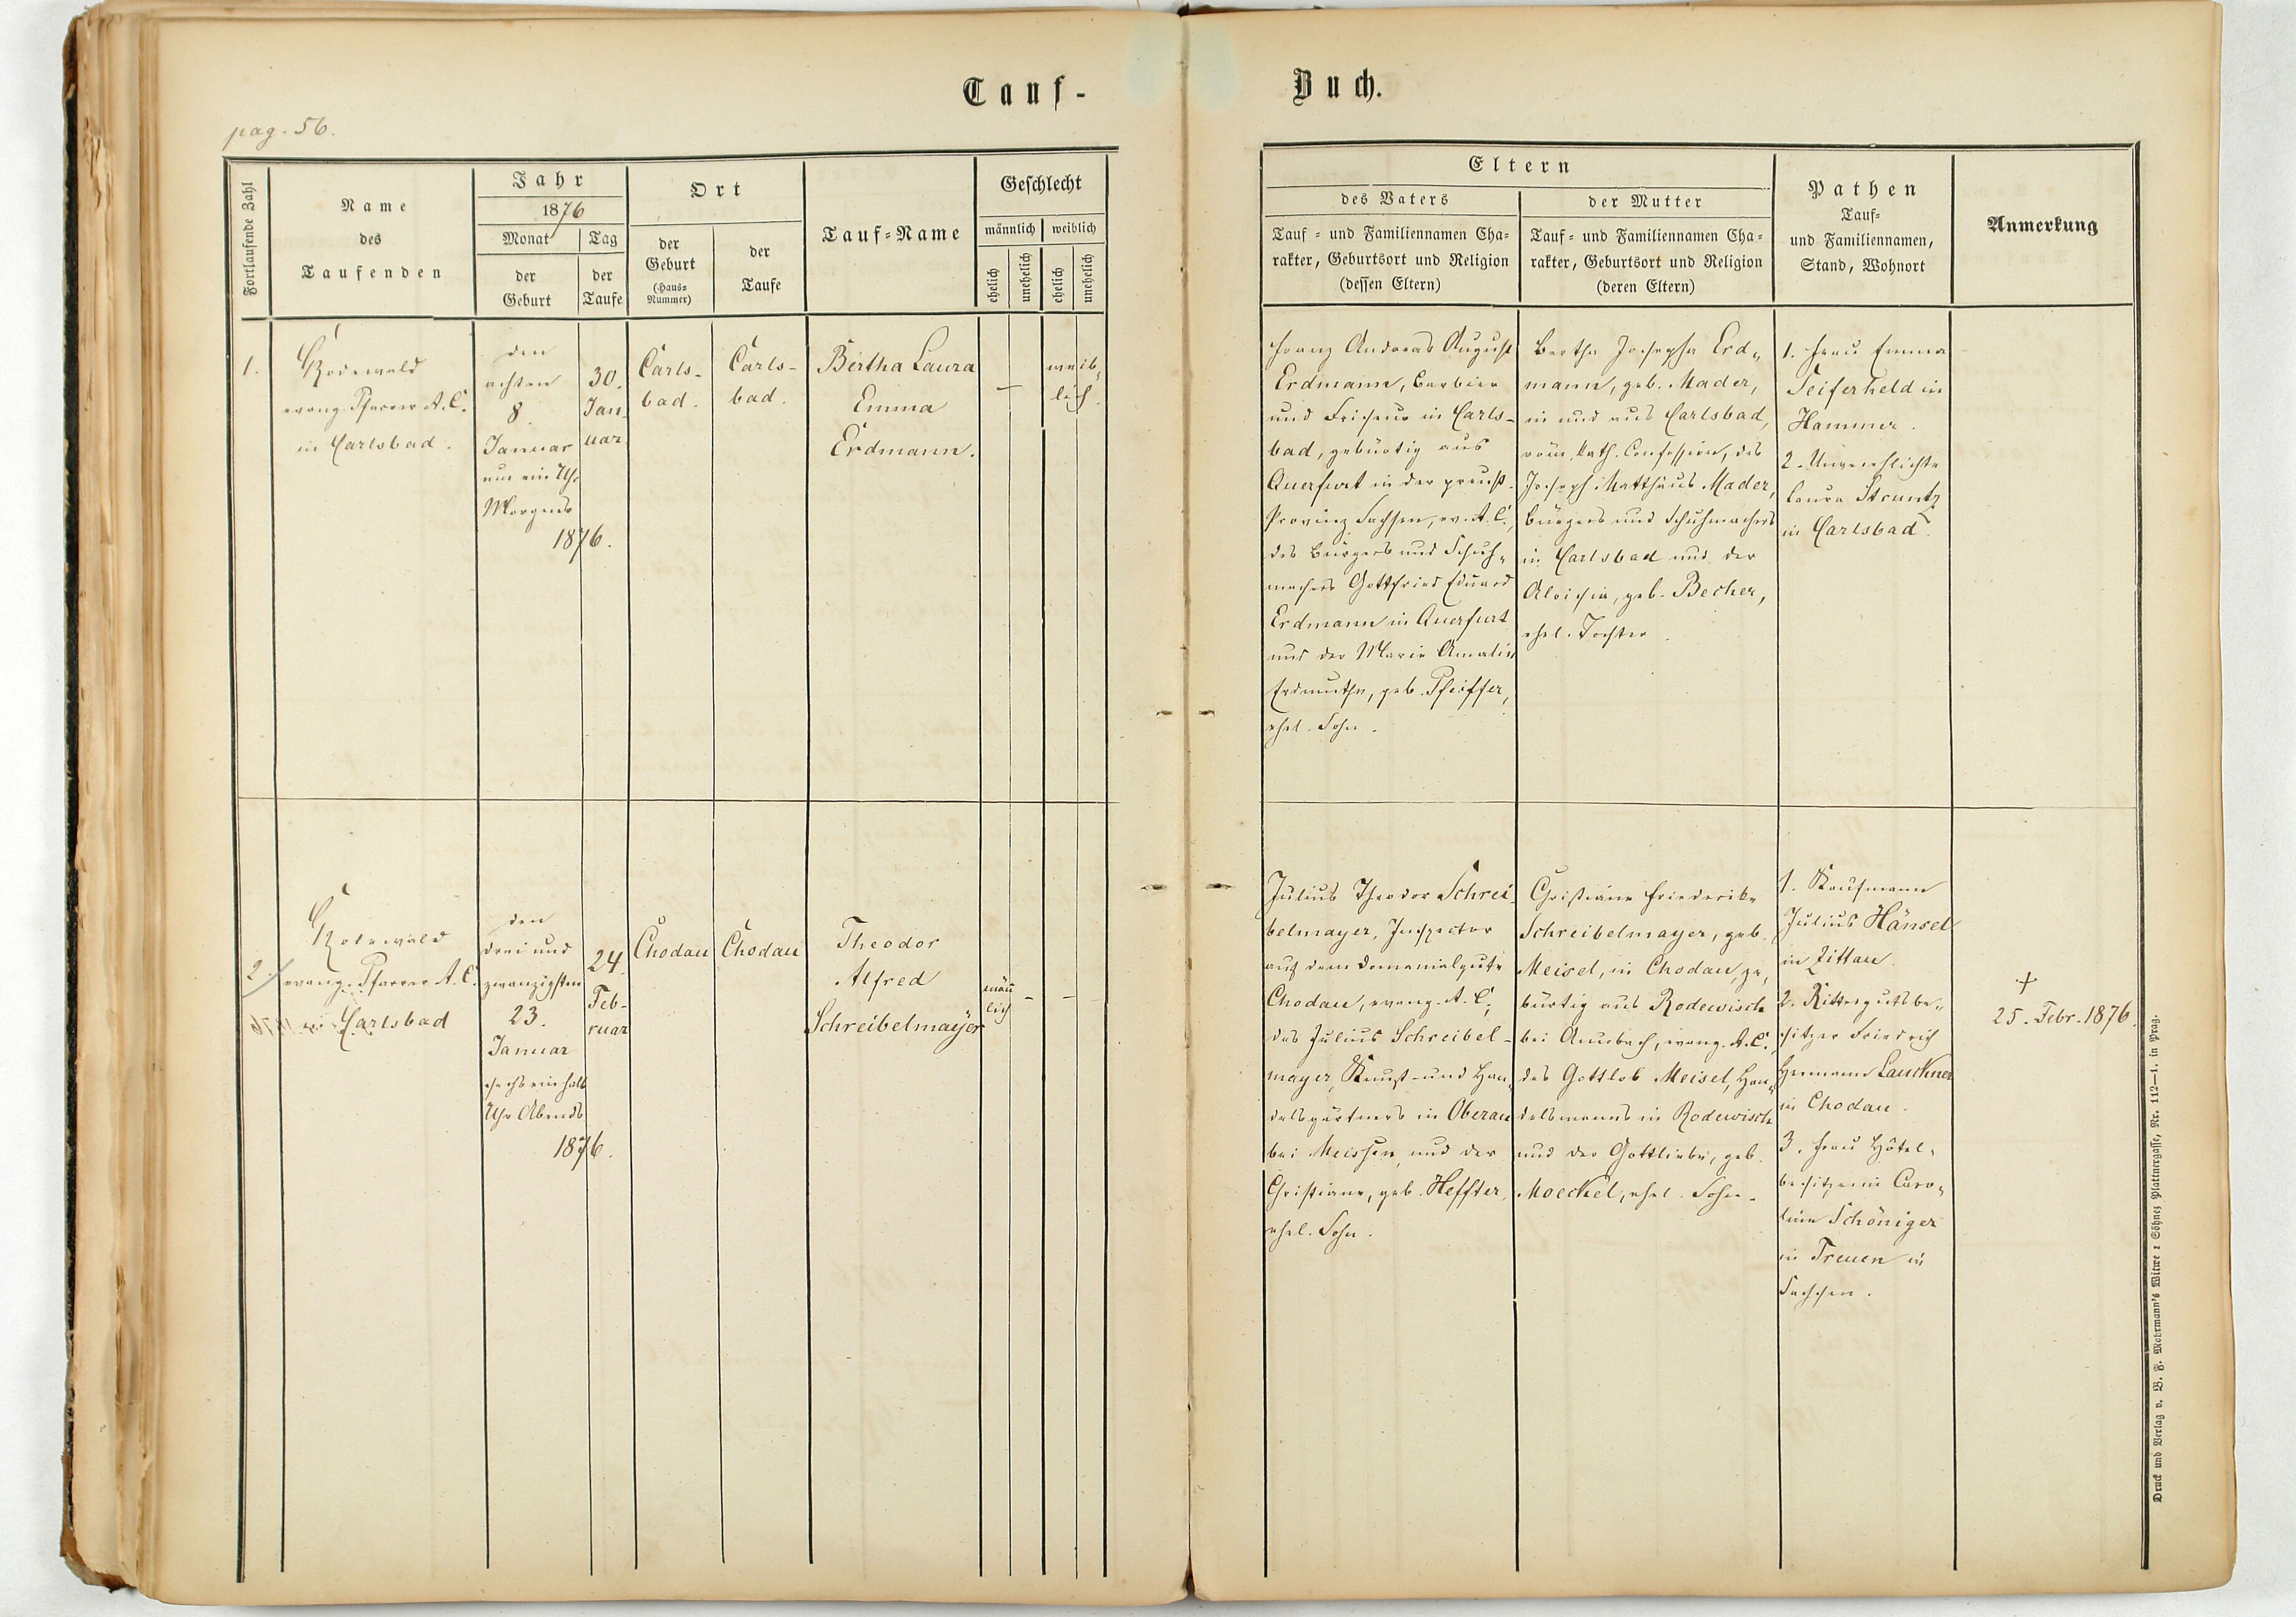 Tauf-
Buch.
pag. 56.
Fortlaufende Zahl
Name
des
Taufenden
Jahr
1876
Monat
der
Geburt
Tag
der
Taufe
Ort
der
Geburt
(Haus-
Nummer)
der
Taufe
Tauf-Name
Geschlecht
männlich
weiblich
ehelich
unehelich
ehelich
unehelich
Eltern
des Vaters
Tauf- und Familiennamen Cha-
rakter, Geburtsort und Religion
(dessen Eltern)
der Mutter
Tauf- und Familiennamen Cha-
rakter, Geburtsort und Religion
(deren Eltern)
Pathen
Tauf-
und Familiennamen,
Stand, Wohnort
Anmerkung
1.
Rodewald
evang. Pfarrer A. C.
in Carlsbad.
den
achten
8.
Januar
um ein Uhr
Morgens
1876.
30.
Jan
uar
Carls-
bad.
Carls-
bad.
Bertha Laura
Emma
Erdmann.
—
weib-
lich.
Franz Andreas August
Erdmann, Barbier
und Friseur in Carls-
bad, gebürtig aus
Querfurt in der preuß.
Provinz Sachsen, ev. A. C.,
des Bürgers und Schuh-
machers Gottfried Eduard
Erdmann in Querfurt
und der Marie Amalie
Erdmuthe, geb. Pfeiffer,
ehel. Sohn.
Bertha Josepha Erd-
mann, geb. Mader,
in und aus Carlsbad,
röm. kath. Confession, des
Joseph Matthäus Mader,
Bürgers und Schuhmachers
in Carlsbad und der
Aloisia, geb. Becher,
ehel. Tochter.
1. Frau Emma
Seiferheld in
Hammer.
2. Unverehlichte
Laura Struntz
in Carlsbad.
2.
Rodewald
evang. Pfarrer A. C.
in Carlsbad
den
drei und
zwanzigsten
23.
Januar
sechs ein halb
Uhr Abends
1876.
24.
Feb-
ruar
Chodau
Chodau
Theodor
Alfred
Schreibelmayer
män
lich
- -
Julius Theodor Schrei-
belmayer, Inspector
auf dem Domanialgute
Chodau, evang. A. C.,
des Julius Schreibel-
mayer, Kunst- und Han-
delsgärtners in Oberau
bei Meissen und der
Christiane, geb. Heffter,
ehel. Sohn.
Christiane Friederike
Schreibelmayer, geb.
Meisel, in Chodau, ge-
bürtig aus Rodewisch
bei Auerbach, evang. A. C.
des Gottlob Meisel, Han-
delsmanns in Rodewisch
und der Gottliebe, geb.
Moeckel, ehel. Sohn.
1. Kaufmann
Julius Hänsel
in Zittau.
2. Rittergutsbe-
sitzer Friedrich
Hermann Lauckner
in Chodau.
3. Frau Hôtel-
besitzerin Caro-
line Schöniger
in Treuen in
Sachsen.
+
25. Febr. 1876.
Druck und Verlag v. B. F. Mohrmann's Witwe & Söhne; Plattnergasse, Nr. 112—1. in Prag.